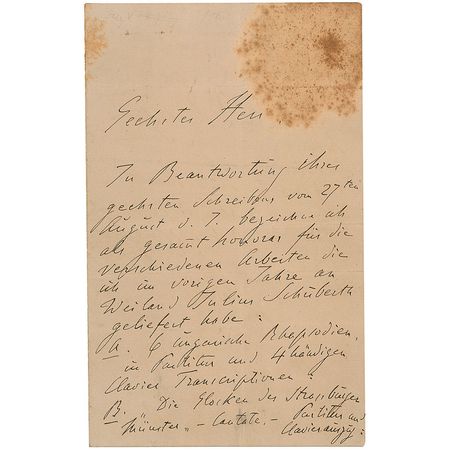 Geehrter Herr
In Beantwortung ihres
geehrten Schreibens vom 27ten
August d. J. bezeichne ich
als gesamt honorar für die
verschiedenen Arbeiten die
ich im vorigen Jahre an
Weiland Julius Schuberth
geliefert habe:
A. 6 ungarische Rhapsodien,
in Partitur und 4 händigen
Clavier Transcriptionen:
B. „Die Glocken des Strassburger
Münster„ – Cantate, – Partitur und
Clavierauszug: